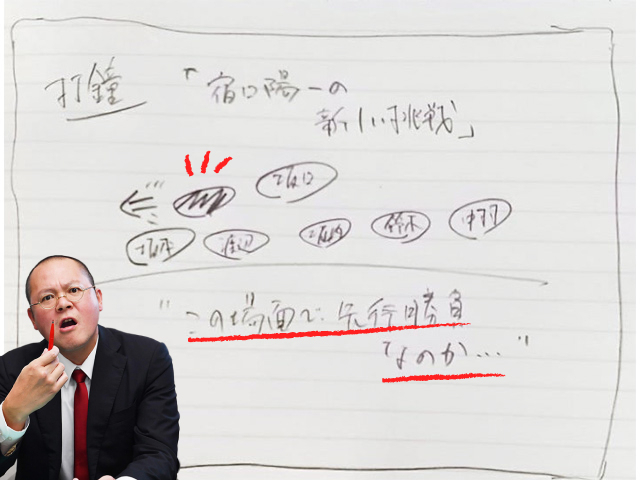 打鐘 「宿口陽一の
新しい挑戦」
坂口
渡辺 鈴木
"この場面で先行勝負
なのか…"